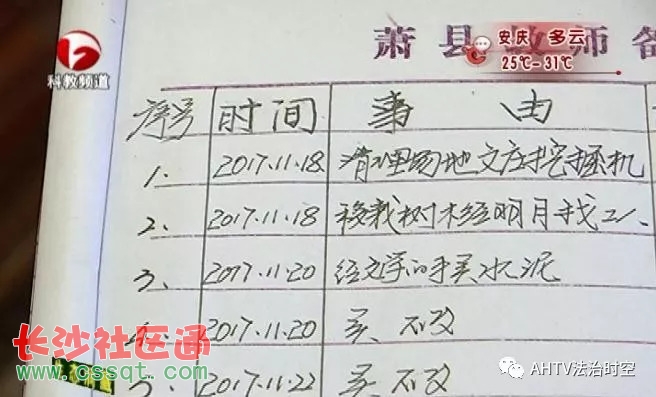 萧县教师备
安庆 多云
25℃-31℃
科教频道
序号 时间 事由
1. 2017.11.18 清理场地文庄挖掘机
2. 2017.11.18 移栽树木经明月找
3、 2017.11.20 经文学的手买水泥
4、 2017.11.20 买
5、 2017.11.22 买
长沙社区通
www.cssqt.com
AHTV法治时空